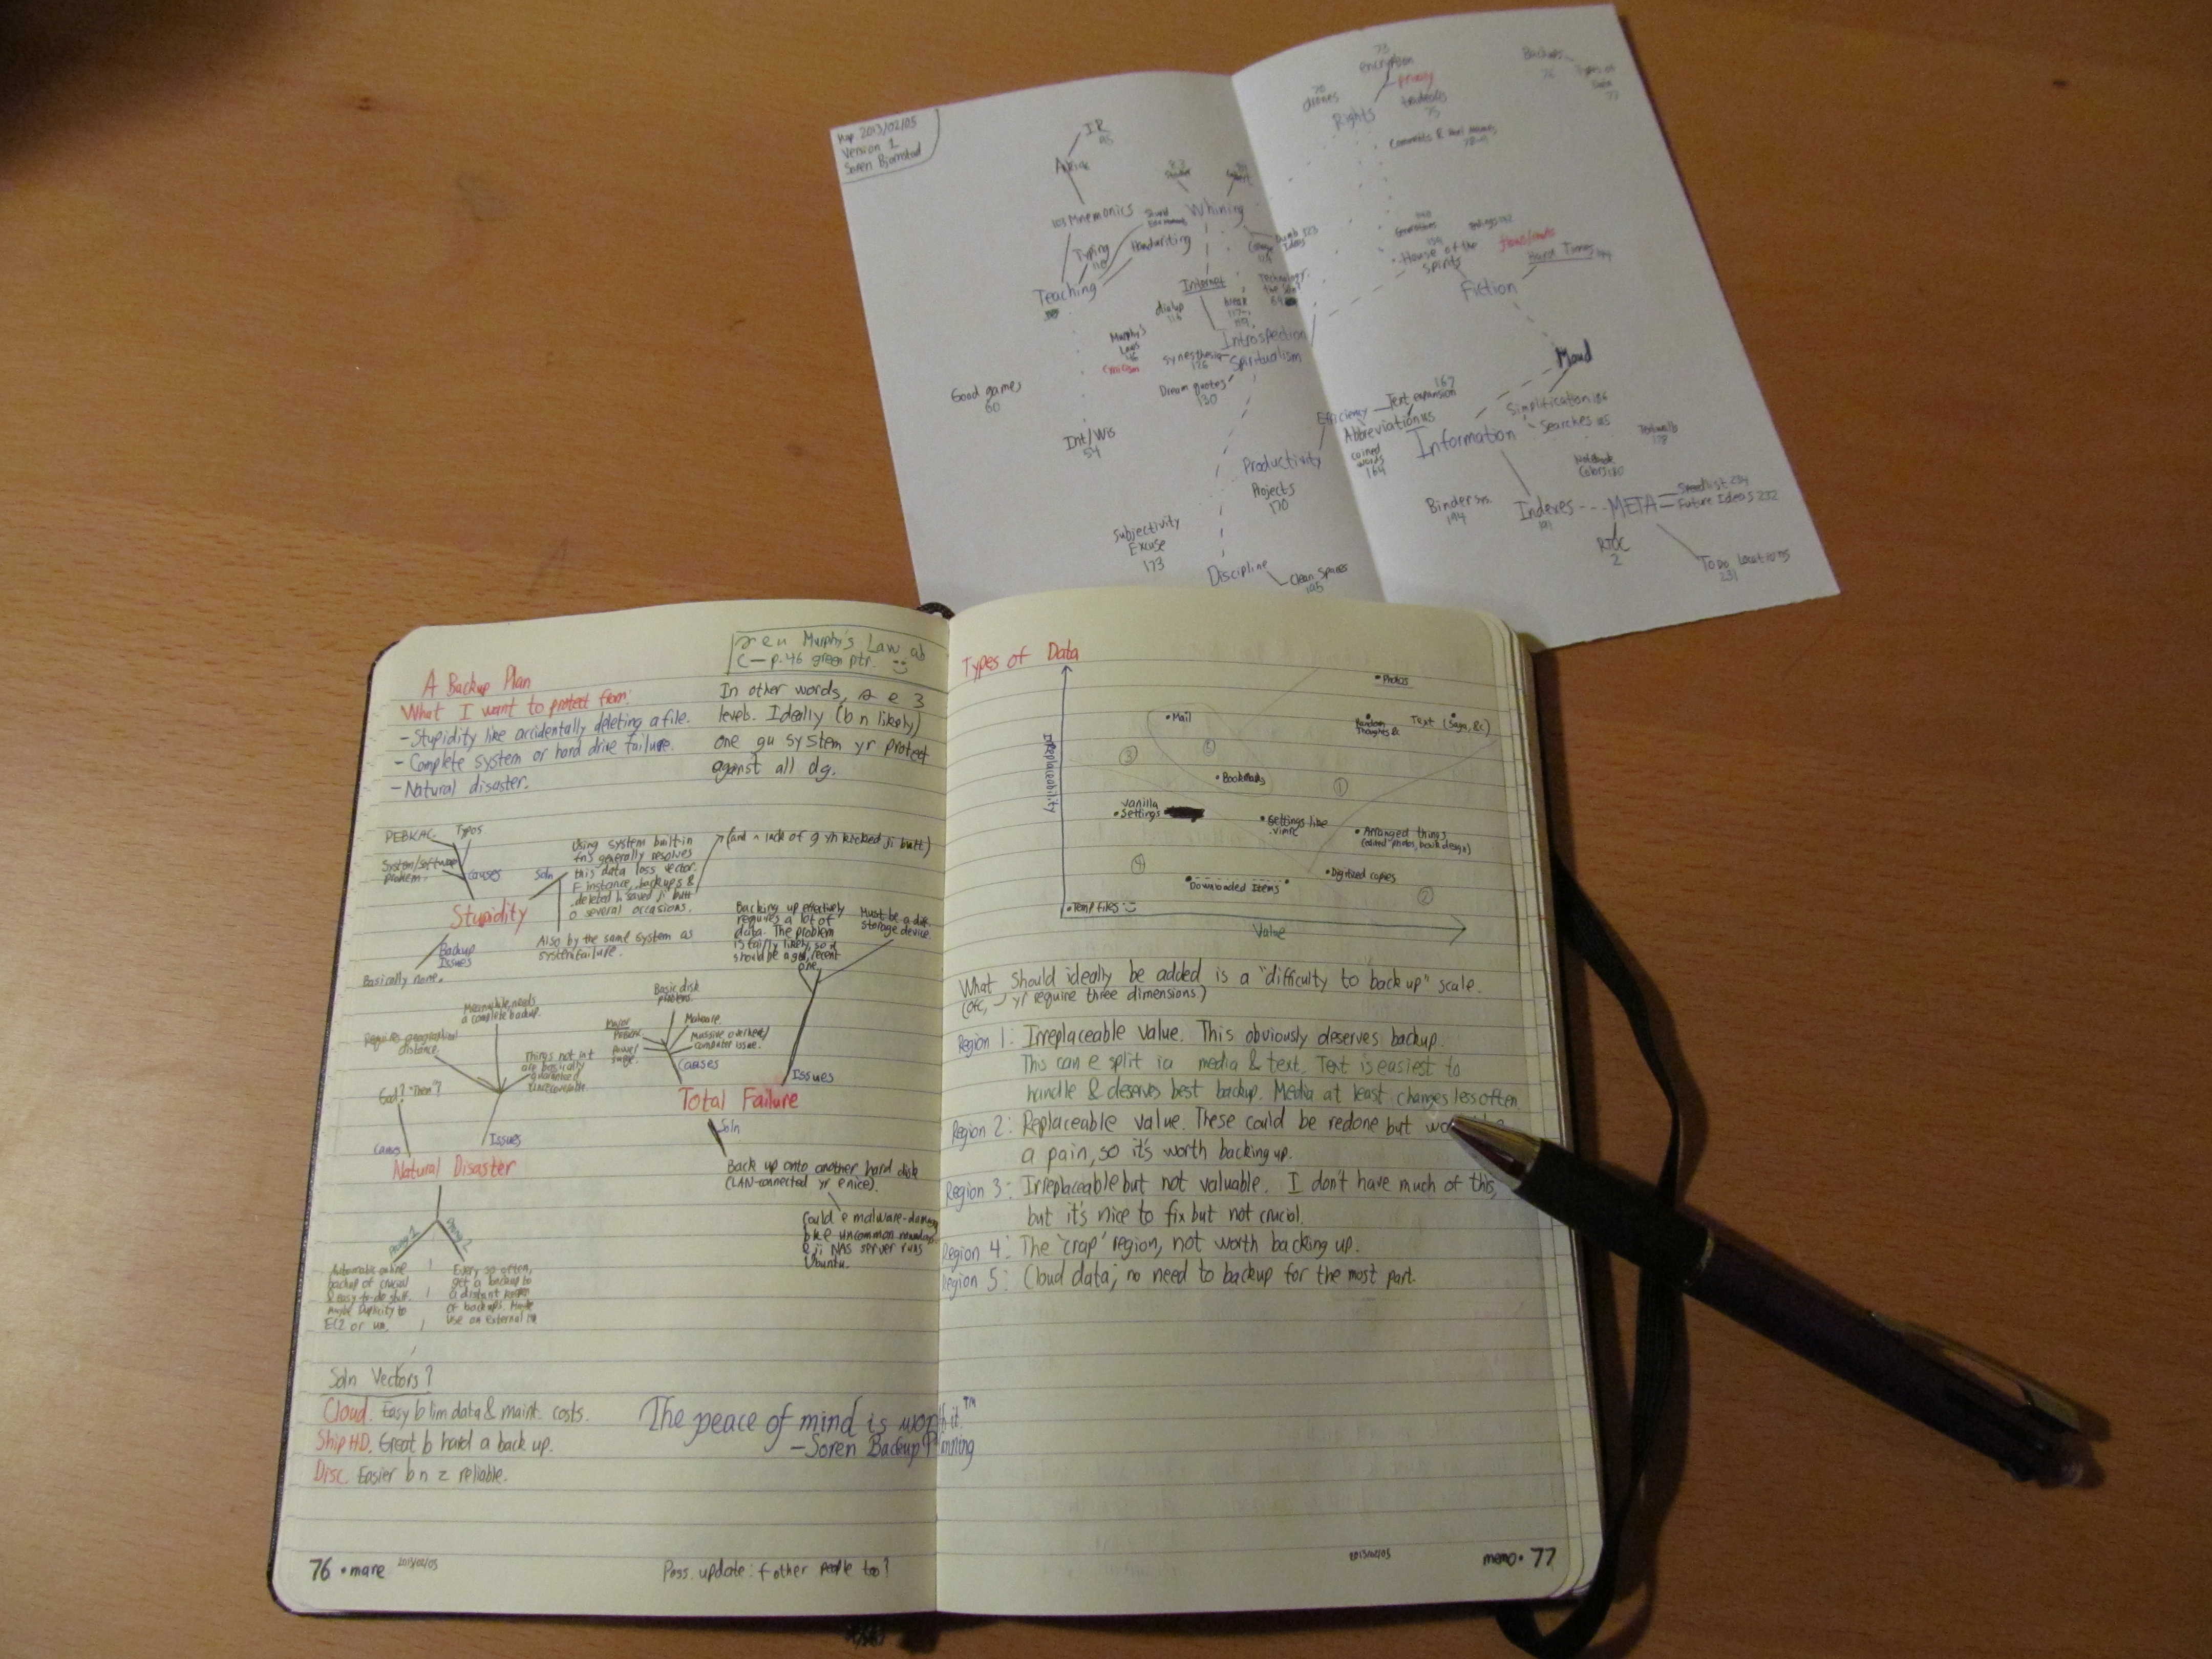 Map 2013/02/05
Version 1
Soren Bjornstad
IR
95
Mnemonics
Typing
Handwriting
Teaching
Whining
Internet
dialup
116
Murphy's
Laws
46
Cynicism
synesthesia
126
Introspection
Spiritualism
Dream quotes
130
Good games
60
Int/Wis
54
Subjectivity
Excuse
173
Productivity
Projects
170
Discipline
Clean Spaces
195
73
encryption
privacy
70
drones
Rights
75
Backups
76
Types of
Data
77
House of the
Spirits
Hard Times
Fiction
Maud
Efficiency
Text expansion
167
Abbreviation
coined
words
164
Simplification 186
Searches
Information
Binder sys.
194
Indexes
191
META
Future Ideas 232
RTOC
2
Todo Locations
231
A Backup Plan
What I want to protect from:
- Stupidity like accidentally deleting a file.
- Complete system or hard drive failure.
- Natural disaster.
Murphy's Law ab
C— p.46 green ptr.
In other words, e 3
levels. Ideally (b n likely)
one gu system yr protect
against all dg.
PEBKAC
Typos
System/software
problem.
causes
Stupidity
Soln
Using system built-in
fns generally resolves
this data loss vector.
F instance, backups &
deleted saved ji butt
o several occasions.
Also by the same system as
system failure.
Backup
Issues
Basically none.
Backing up effectively
requires a lot of
data. The problem
is fairly likely, so it
should be a gd, recent
one.
Must be a diff.
storage device.
Meanwhile, needs
a complete backup.
Requires geographical
distance.
Things not in it
are basically
guaranteed
unrecoverable.
God? "Them"?
Issues
Natural Disaster
Basic disk
problem.
Major
PEBKAC
Power
surge.
Malware.
Massive overheat/
computer issue.
causes
Issues
Total Failure
Soln
Back up onto another hard disk
(LAN-connected yr e nice).
Could e malware-damag
uncommon
ji NAS server runs
Ubuntu.
Prong 1
Prong 2
Automatic online
backup of crucial
& easy-to-do stuff.
maybe Duplicity to
EC2 or un.
Every so often,
get a backup to
a distant
of backups. Maybe
use an external
Soln Vectors?
Cloud. Easy b lim data & maint. costs.
Ship HD. Great b hard a back up.
Disc. Easier b n z reliable.
The peace of mind is worth it.™
—Soren Backup Planning
76 • mare 2013/02/05
Poss. update: f other people too?
Types of Data
Irreplaceability
Photos
Mail
Random
Thoughts &c
Text (Saga, &c)
③
⑤
Bookmarks
①
Vanilla
Settings
Settings like
.vimrc
Arranged things
(edited photos, book design)
④
Downloaded Items
Digitized copies
②
Temp files
Value
What should ideally be added is a "difficulty to back up" scale.
(ofc, yr require three dimensions)
Region 1: Irreplaceable value. This obviously deserves backup.
This can e split ia media & text. Text is easiest to
handle & deserves best backup. Media at least changes less often.
Region 2: Replaceable value. These could be redone but
a pain, so it's worth backing up.
Region 3: Irreplaceable but not valuable. I don't have much of this,
but it's nice to fix but not crucial.
Region 4: The 'crap' region, not worth backing up.
Region 5: Cloud data; no need to backup for the most part.
2013/02/05
memo • 77